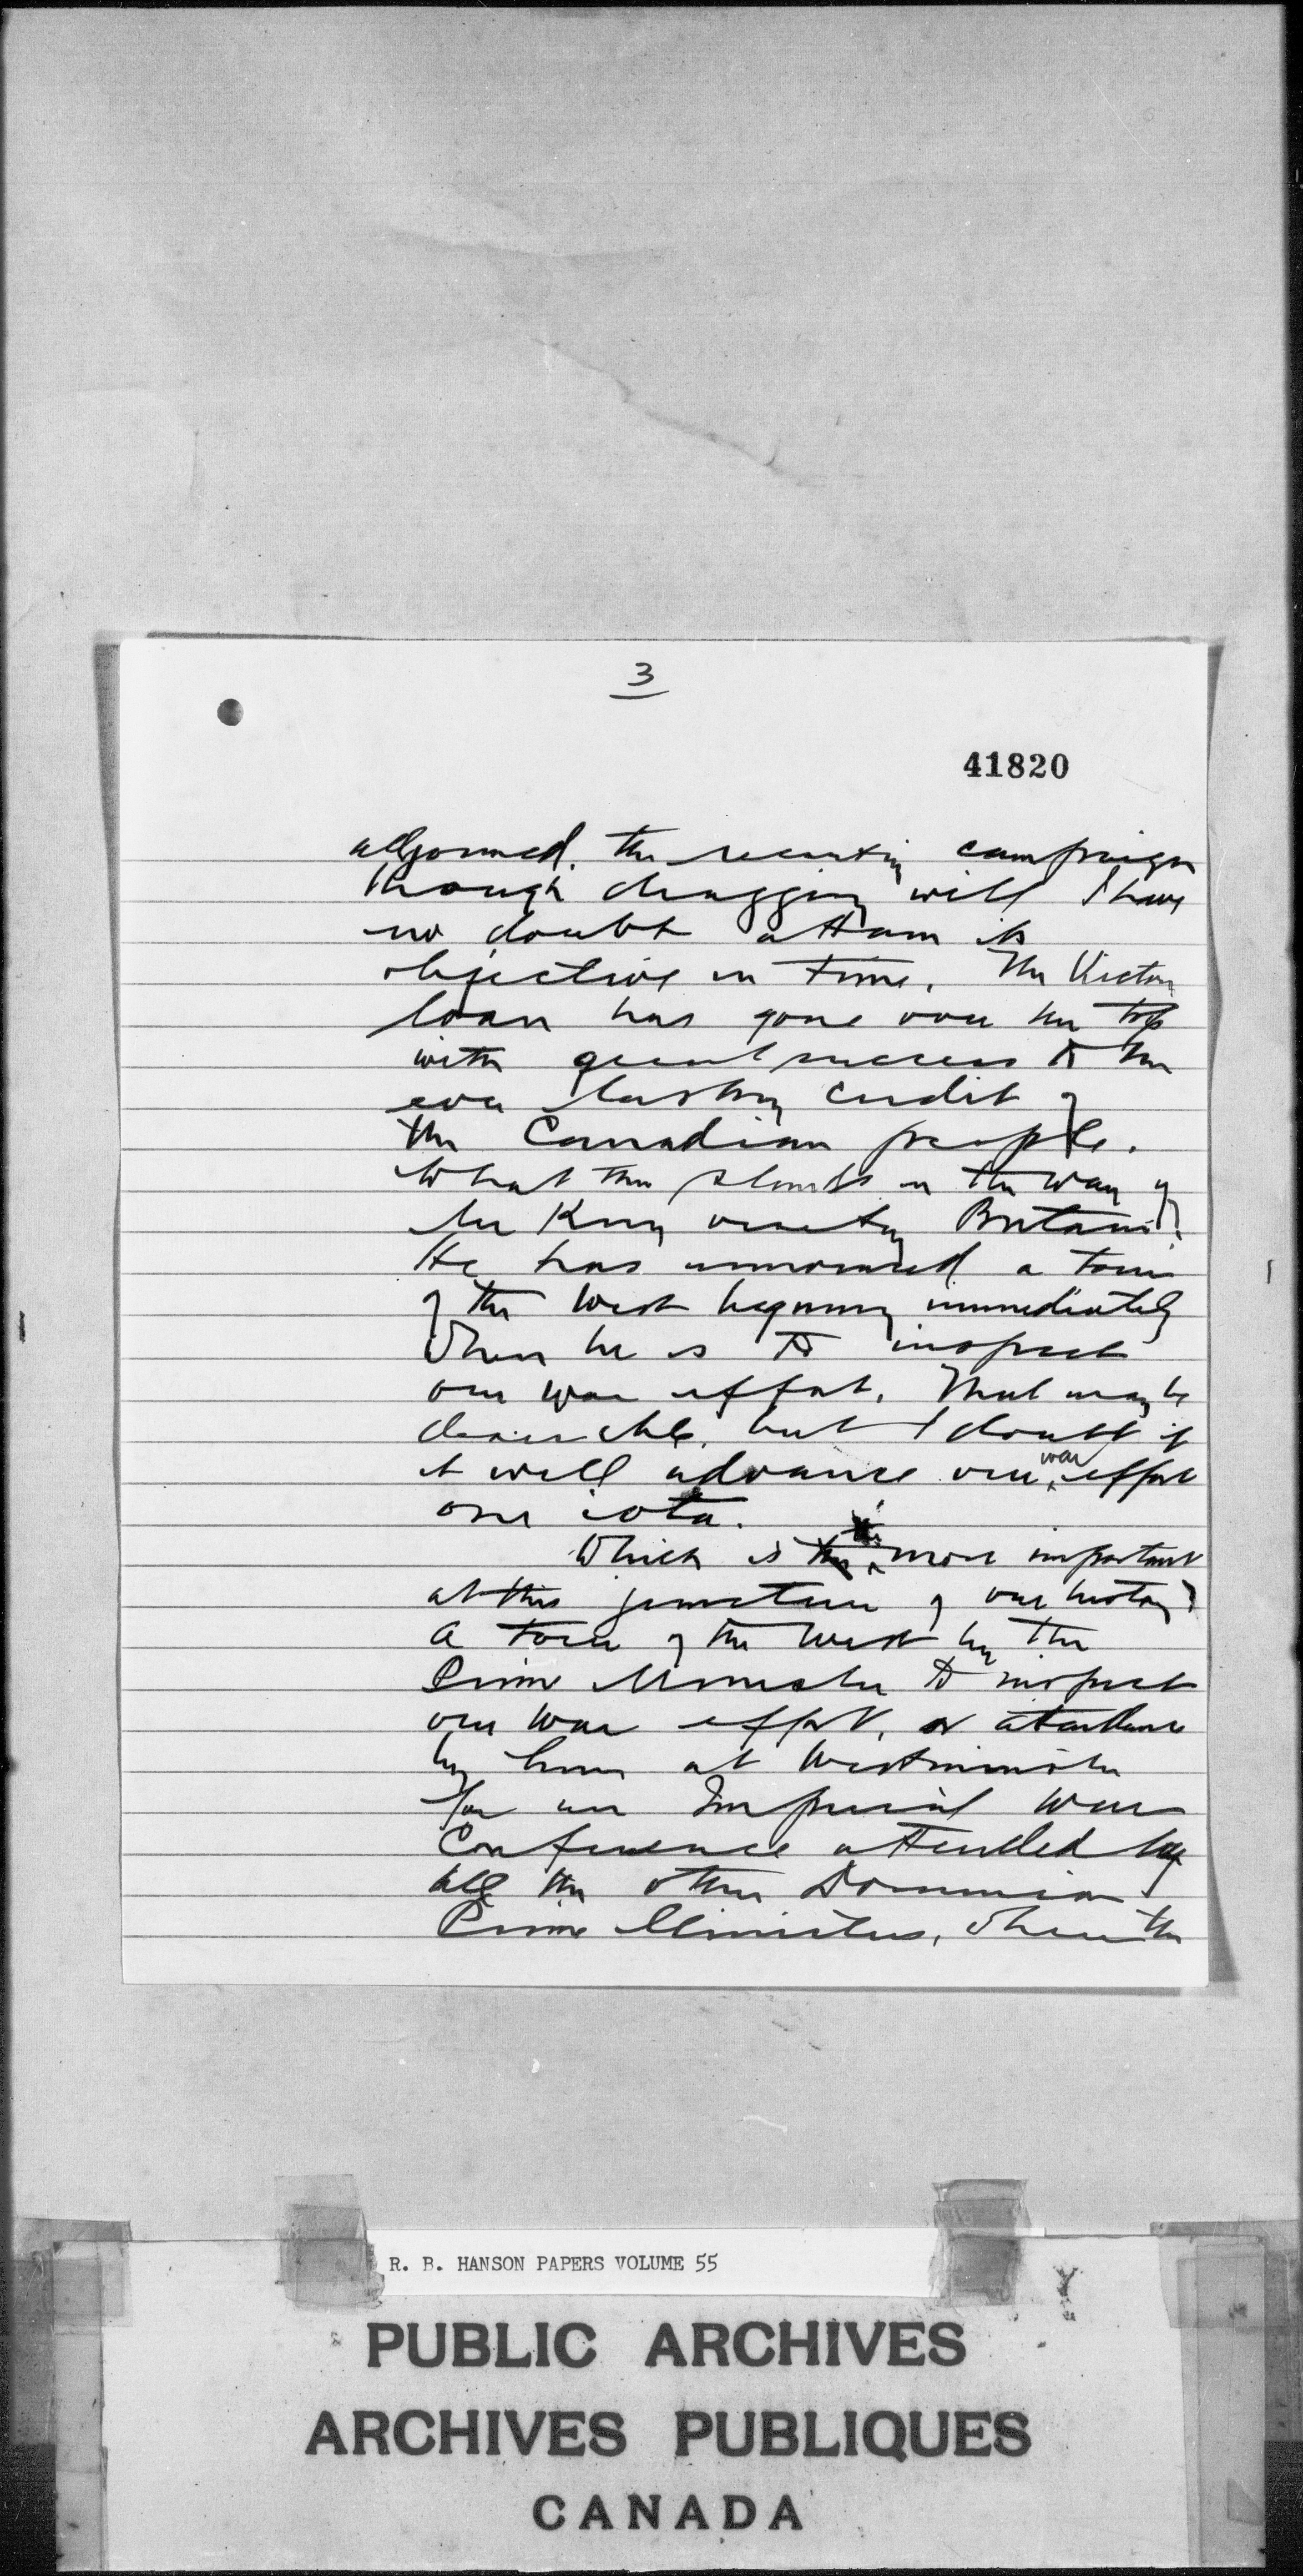 3
41820
adjourned. The recruiting campaign
though dragging will I have
no doubt attain its
objective in time. The Victory
loan has gone over the top
with great success to the
ever lasting credit of
the Canadian people.
What then stands in the way of
Mr King visiting Britain?
He has announced a tour
of the West beginning immediately
when he is to inspect
our war effort. That may be
desirable, but I doubt if
it will advance our war effort
one iota.
Which is the more important
at this juncture of our history?
A tour of the West by the
Prime Minister to inspect
our war effort, or attendance
by him at Westminster
for an Imperial War
Conference attended by
all the other Dominion
Prime Ministers, when the
R. B. HANSON PAPERS VOLUME 55
PUBLIC ARCHIVES
ARCHIVES PUBLIQUES
CANADA